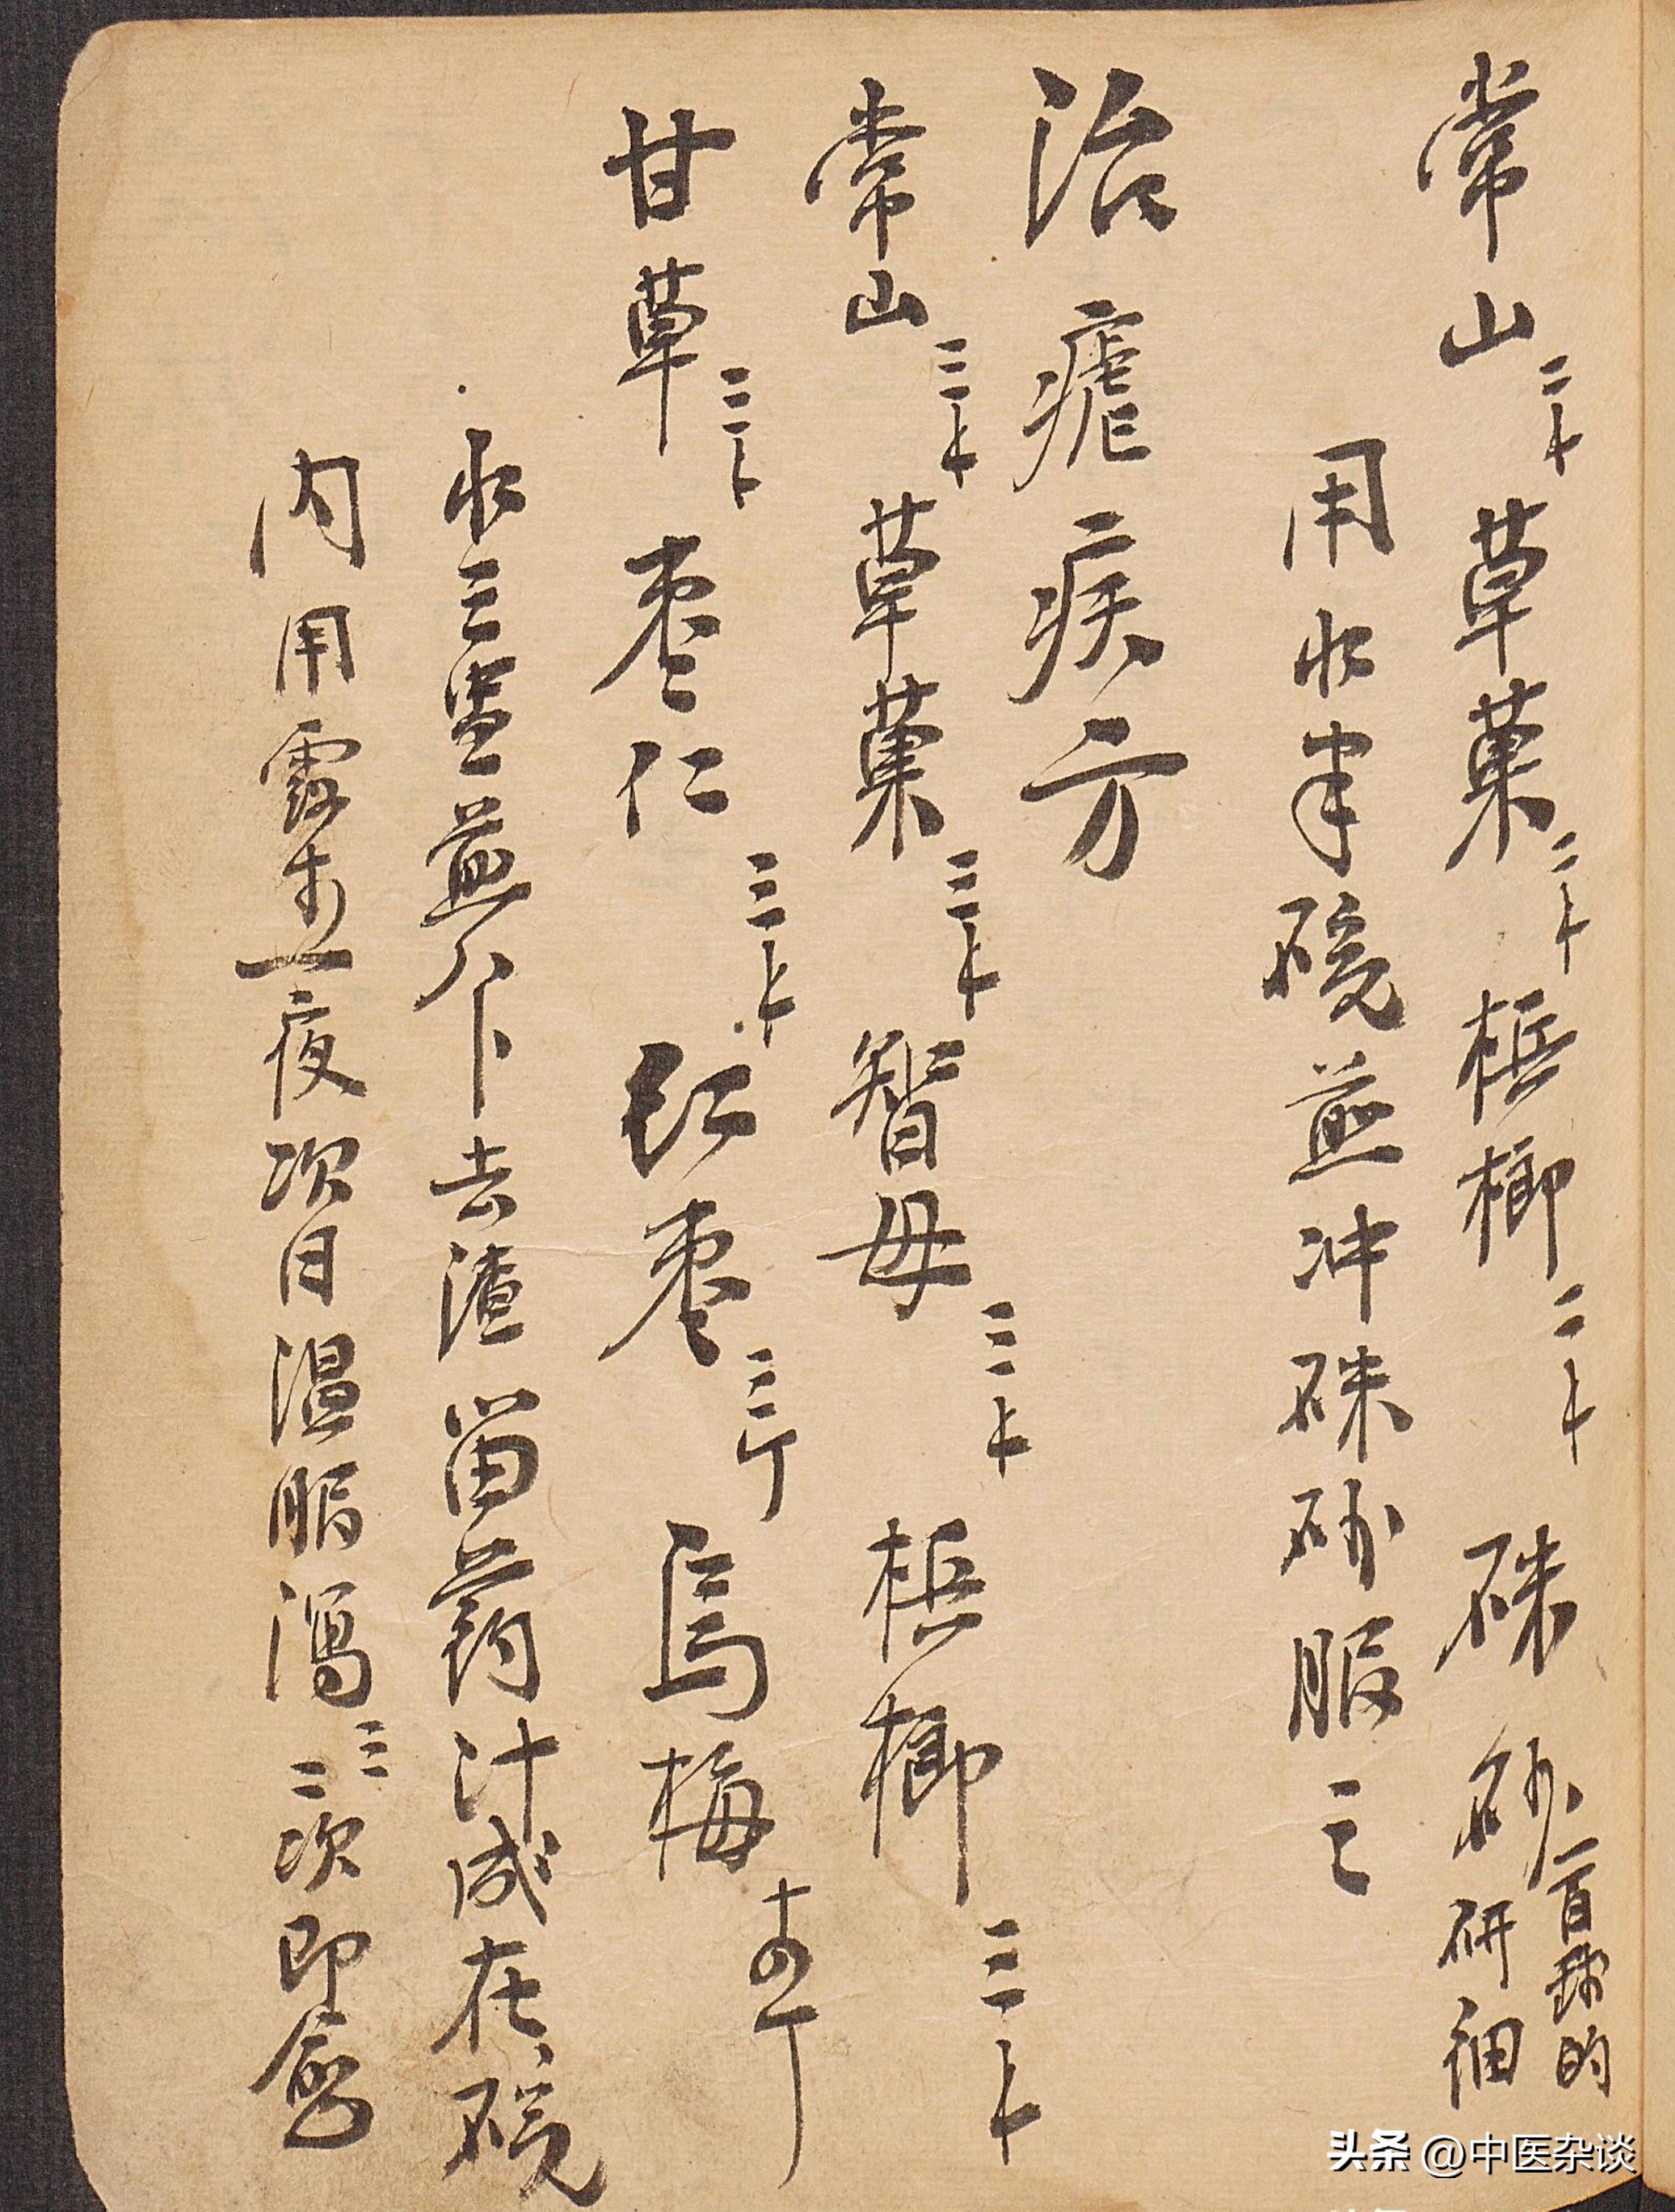 常山二卜草菓二卜梹榔二卜硃砂一百錢的研细
用水半碗煎冲硃砂服之
治瘧疾方
常山三卜草菓三卜智母三卜梹榔三卜
甘草三卜枣仁三卜红枣三丁烏梅
水三盅煎 去渣畄药汁咸在碗
内用露 一夜次日温服瀉三二次即愈
头条 @中医杂谈